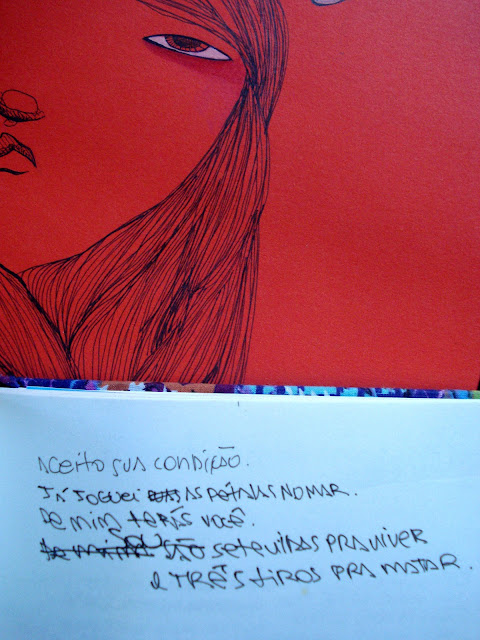 Aceito sua condição.
Já joguei as pétalas no mar.
De mim terás você.
São sete vidas pra viver
e três tiros pra matar.